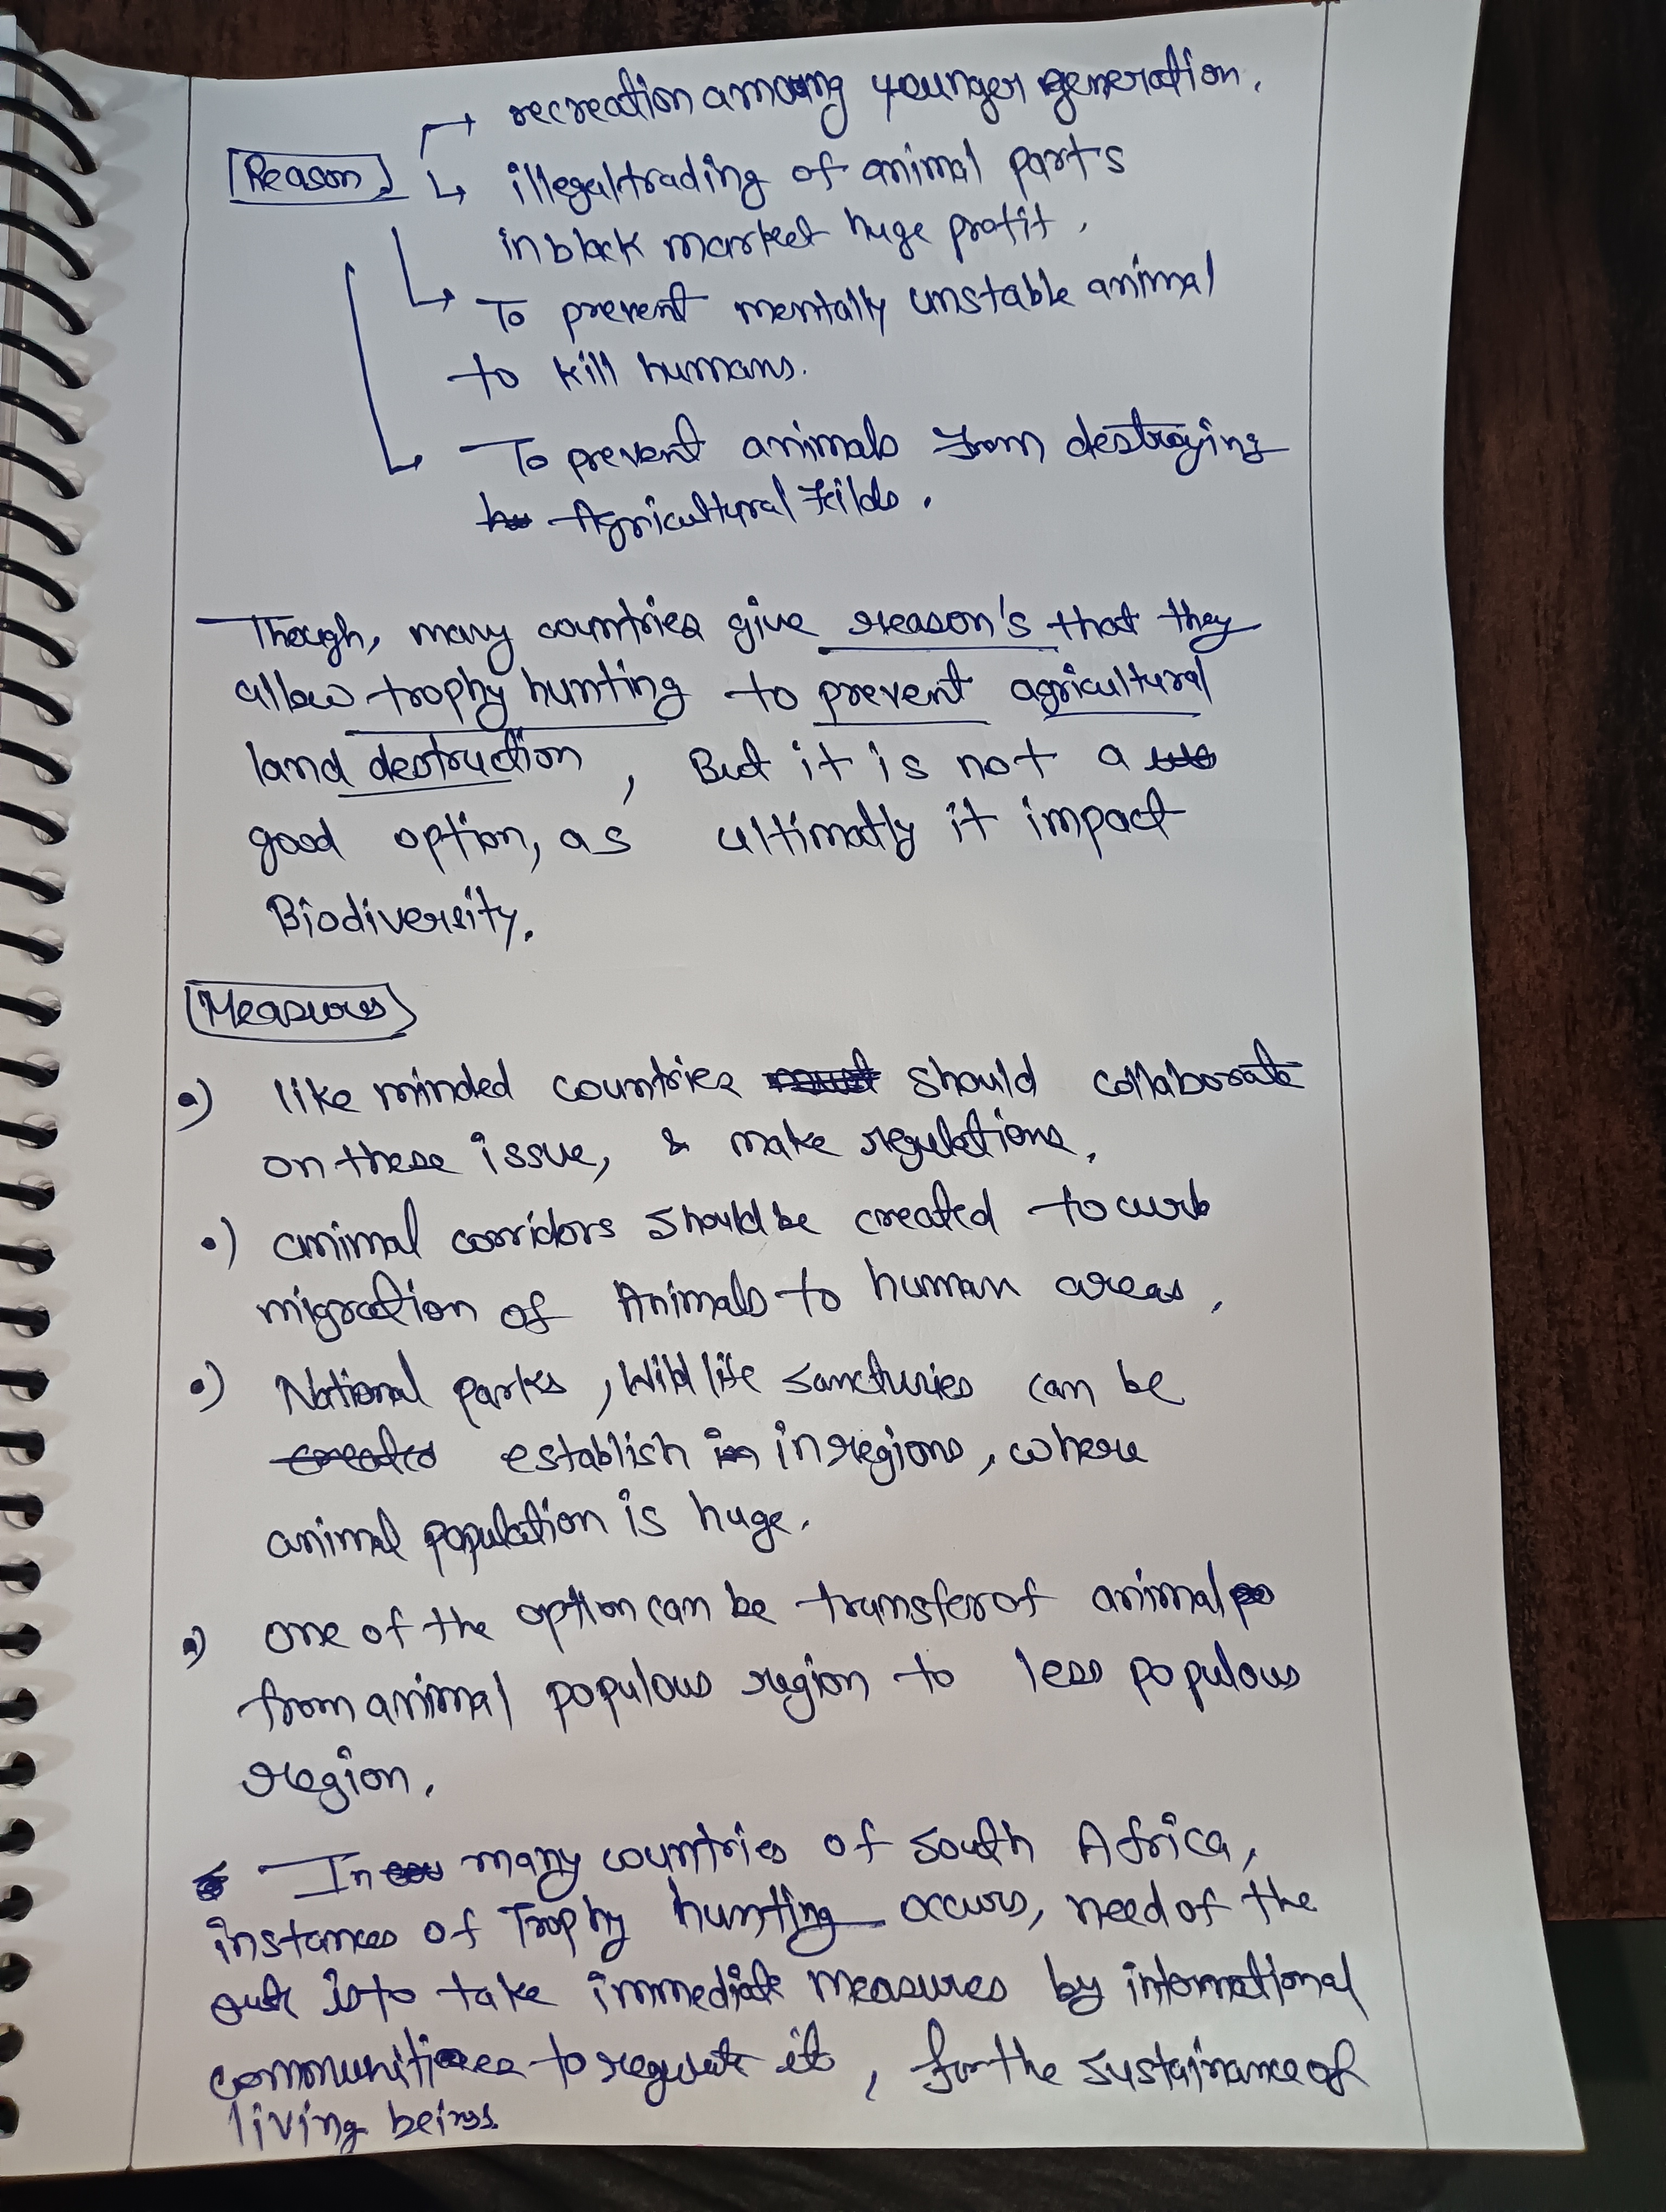 recreation among younger generation.
Reason
illegal trading of animal part's
in black market huge profit.
To prevent mentally unstable animal
to kill humans.
To prevent animals from destroying
Agricultural feilds.
Though, many countries give reason's that they
allow trophy hunting to prevent agricultural
land destruction, But it is not a
good option, as ultimatly it impact
Biodiversity.
Measures
•) like minded countries should collaborate
on these issue, & make regulations.
•) animal corridors should be created to curb
migration of Animals to human areas.
•) National parks, Wild life sancturies can be
establish in regions, where
animal population is huge.
•) one of the option can be transfer of animal
from animal populous region to less populous
region.
In many countries of South Africa,
instances of Trophy hunting occurs, need of the
is to take immediate measures by international
to regulate it, for the sustainance of
living beings.